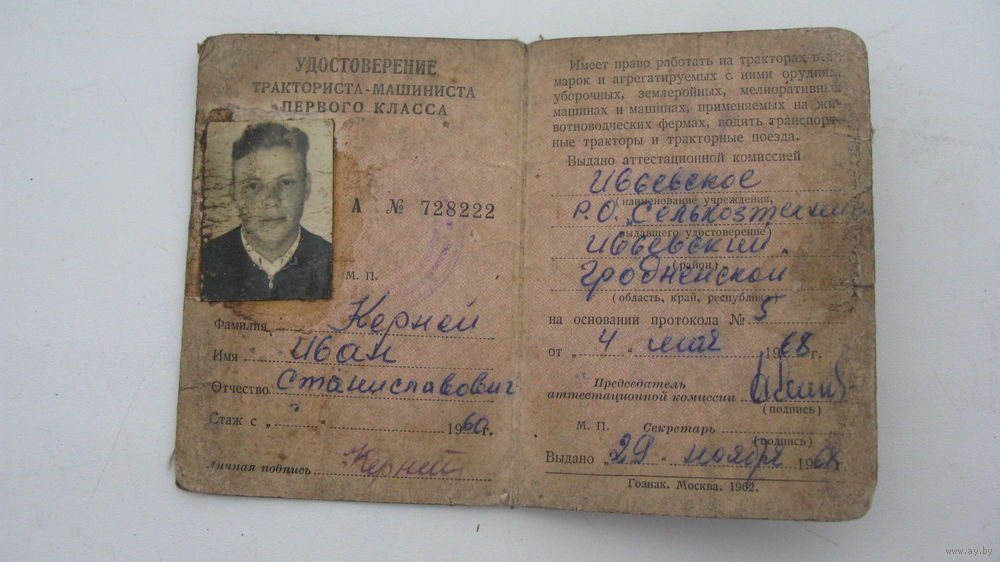 УДОСТОВЕРЕНИЕ
ТРАКТОРИСТА-МАШИНИСТА
ПЕРВОГО КЛАССА
А № 728222
М. П.
Фамилия Керней
Имя Иван
Отчество Станиславович
Стаж с „ “ 1960 г.
Личная подпись Керней
Имеет право работать на тракторах всех
марок и агрегатируемых с ними орудиях,
уборочных, землеройных, мелиоративных
машинах и машинах, применяемых на жи-
вотноводческих фермах, водить транспорт-
ные тракторы и тракторные поезда.
Выдано аттестационной комиссией
Ивьевское
(наименование учреждения,
Р.О. „Сельхозтехника
выдавшего удостоверение)
Ивьевский
(район)
Гродненской
(область, край, республика)
на основании протокола № 5
от „ 4 “ мая 1968 г.
Председатель
аттестационной комиссии
(подпись)
М. П. Секретарь
(подпись)
Выдано „ 29 “ ноября 1968 г.
Гознак. Москва. 1962.
www.ay.by